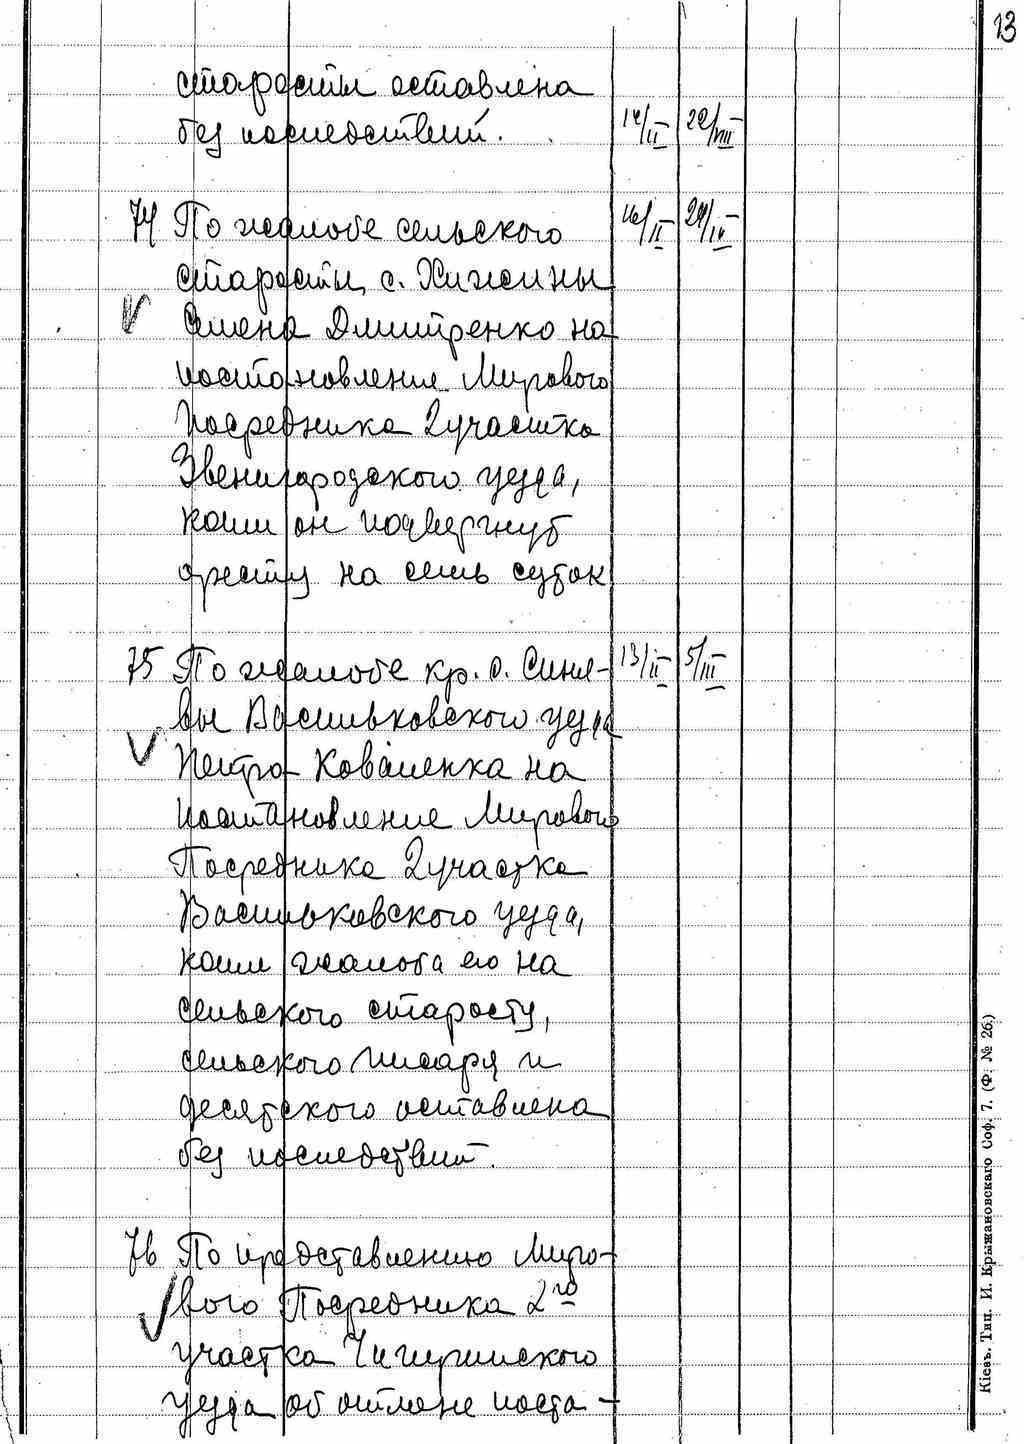 13
старосты оставлена
без последствий. 14/II 22/VIII
74 По жалобе сельского 16/II 24/IV
старосты с. Хижины
Семена Дмитренко на
постановление Мирового
Посредника 2 участка
Звенигородского уезда,
коим он подвергнут
аресту на семь суток
75 По жалобе кр. с. Синя- 13/II 5/III
вы Васильковского уезда
Петра Коваленка на
постановление Мирового
Посредника 2 участка
Васильковского уезда,
коим жалоба его на
сельского старосту,
сельского писаря и
десятского оставлена
без последствий.
76 По представлению Миро-
вого Посредника 2го
участка Чигиринского
уезда об отмене поста-
Кіевъ. Тип. И. Крыжановскаго Соф. 7. (Ф. № 26.)